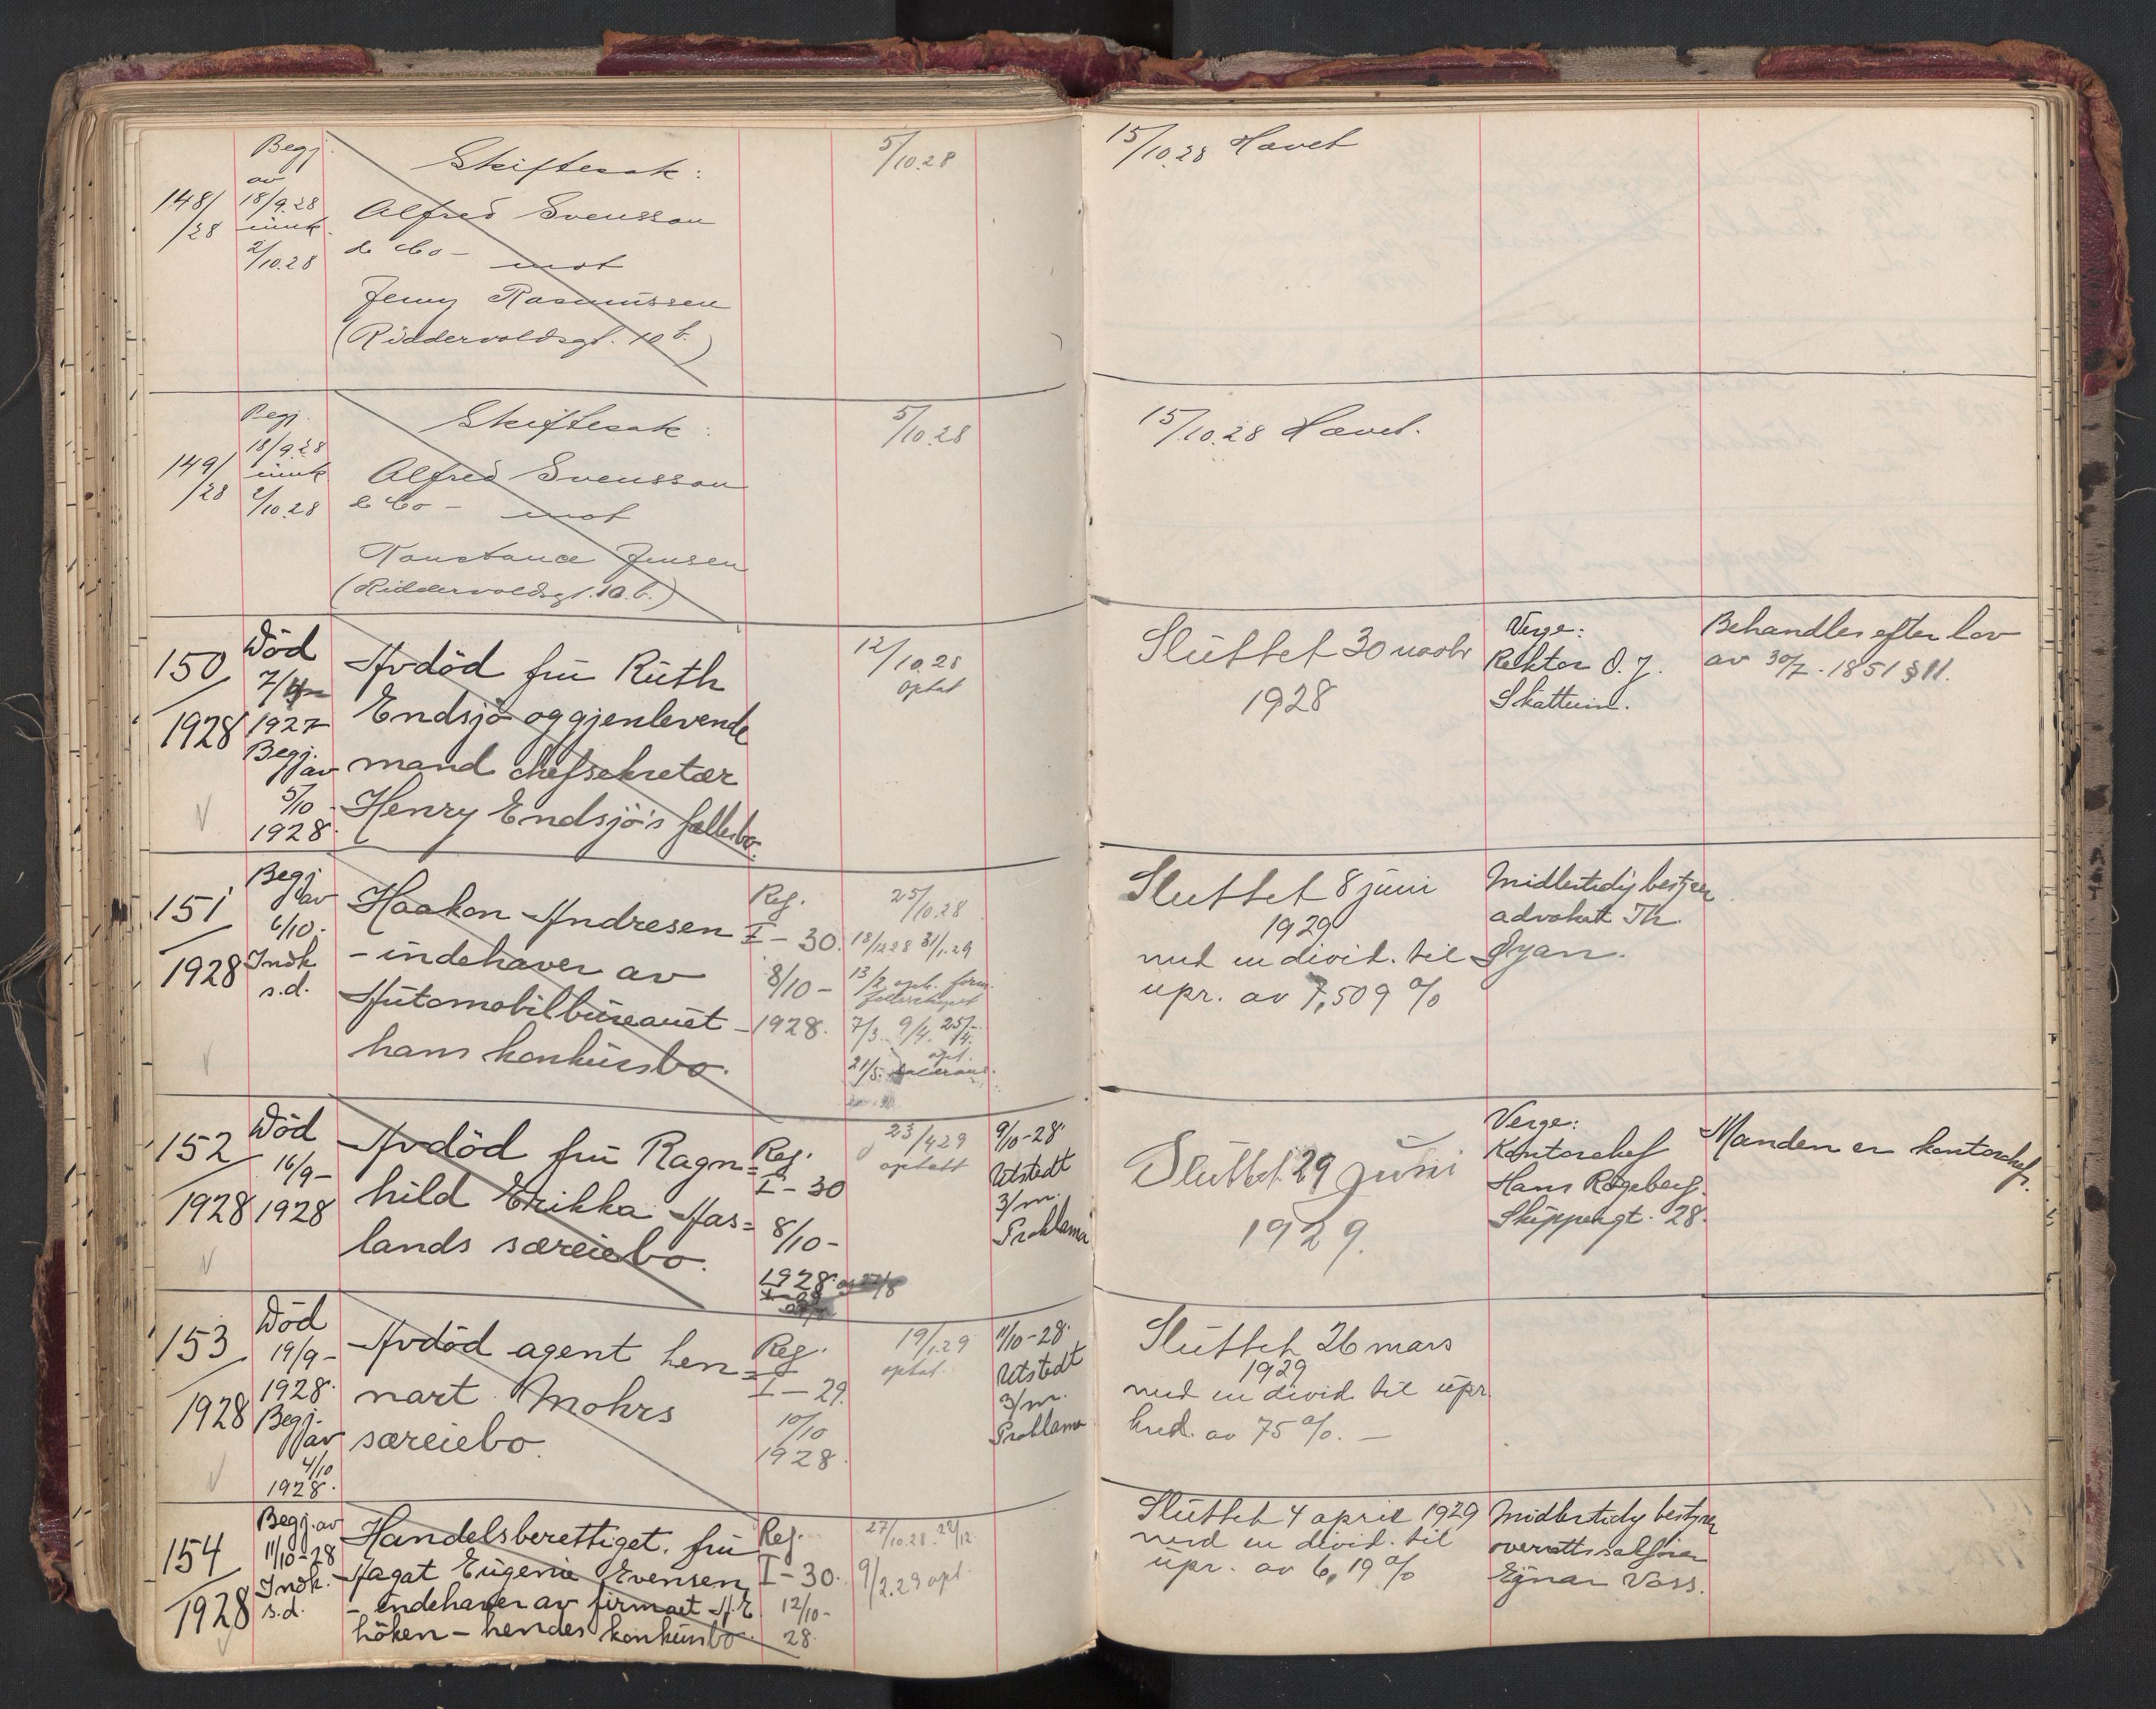 148/28
Begj.
av
18/9.28
innk.
2/10.28
Skiftesak:
Alfred Svensson
& Co – mot
Jenny Rasmussen
(Riddervoldsgt. 10 b.)
5/10.28
15/10.28 Hævet
149/28
Begj.
18/9.28
innk
2/10.28
Skiftesak:
Alfred Svensson
& Co – mot
Konstance Jensen
(Riddervoldsgt. 10. b.)
5/10.28
15/10.28 Hævet.
150/1928
Död
1927
Begj. av
5/10-
1928.
Avdöd frü Rüth
Endsjö og gjenlevende
mand chefsekretær
Henry Endsjö's fellesbo.
12/10.28
optat
Slüttet 30 novbr
1928
Verge:
Rektor O. J.
Skattum.
Behandles efter lov
av 30/7-1851 § 11.
151/1928
Begj. av
6/10-
Indk.
s.d.
Haakon Andresen
- indehaver av
Aütomobilbüreauet -
hans konkürsbo.
Reg.
I – 30.
8/10 –
1928.
25/10.28
18/12 28 31/1.29
13/2
7/3 9/4 25/4.
opt.
21/5
Slüttet 8 juni
1929
med en divid. til
upr. av 7,509 %
Midlertidig bestyrer
advokat Th.
Ryan.
152/1928
Död
16/9-
1928
Avdöd frü Ragn=
hild Erikka Aas=
lands særeiebo.
Reg.
I – 30
8/10-
1928.
23/4 29
optatt
9/10-28
Utstedt
3/m.
Proklama
Sluttet 29 juni
1929.
Verge:
Kontorchef
Hans Rogeberg.
Skippergt. 28.
Manden er kontorchef.
153/1928
Död
19/9-
1928.
Begj. av
4/10
1928.
Avdöd agent Len=
nart Mohrs
særeiebo.
Reg.
I – 29.
10/10
1928.
19/1.29
optat.
11/10-28.
Utstedt
3/m.
Proklama
Slüttet 26 mars
1929
med en divid. til üpr.
kred. av 75 %. –
154/1928
Begj. av
11/10-28
Indk.
s.d.
Handelsberettiget, frü
Aagat Eügenie Evensen,
- indehaver av firmaet A. E.
höken – hendes konkürsbo.
Reg.
I – 30.
12/10-
28.
27/10.28. 22/12.
9/2.29 opt.
Slüttet 4 april 1929
med en divid. til
üpr. av 6,19 %
Midlertidig bestyrer
overrettssakfører
Ejnar Voss.